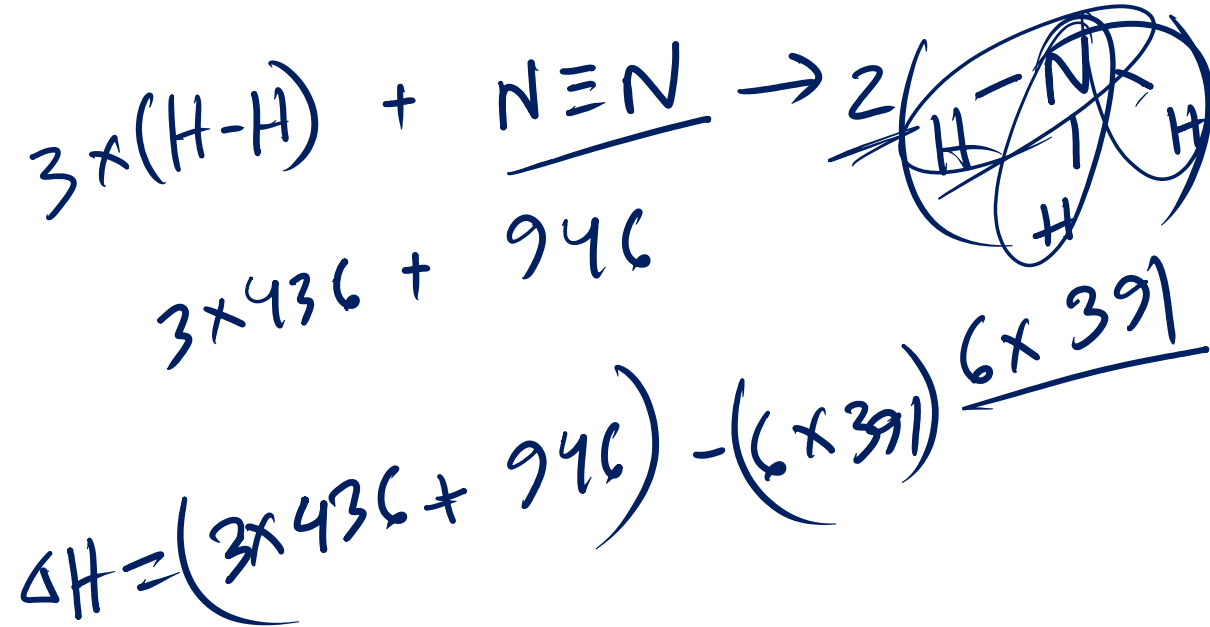 3 × (H-H) + N≡N → 2(H-N-H
|
H)
3×436 + 946
6 × 391
ΔH = (3×436 + 946) - (6×391)